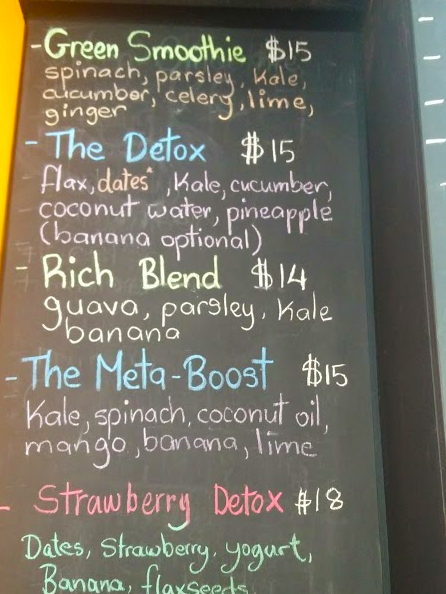 -Green Smoothie $15
spinach, parsley, Kale,
cucumber, celery, lime,
ginger
- The Detox $15
flax, dates*, Kale, cucumber,
coconut water, pineapple
(banana optional)
- Rich Blend $14
guava, parsley, Kale
banana
- The Meta-Boost $15
Kale, spinach, coconut oil,
mango, banana, lime
- Strawberry Detox $18
Dates, Strawberry, yogurt,
Banana, flaxseeds